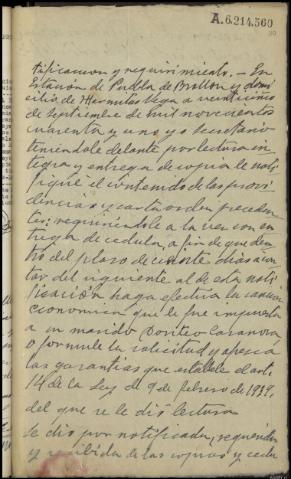 A.6.214.560
tificacion y requirimiento.- En
Estación de Puebla de Brollon y domi
cilio de Hermitas Vega a veinticinco
de septiembre de mil novecientos
cuarenta y uno, yo Secretario
teniéndole delante por lectura in
tegra y entrega de copia le noti
fiqué el contenido de las provi
dencias y carta orden preceden
tes; requiriéndole a la vez con en
trega de cedula, a fin de que den
tro del plazo de veinte dias a con
tar del siguiente al de esta noti
ficación haga efectiva la sanción
economica que le fue impuesta
a su marido Benito Casanova
o formule la solicitud y ofrezca
las garantias que establece el art.
14 de la Ley de 9 de febrero de 1939,
del que se le dió lectura
Se dió por notificada, requerida
y recibida de las copias y cedu